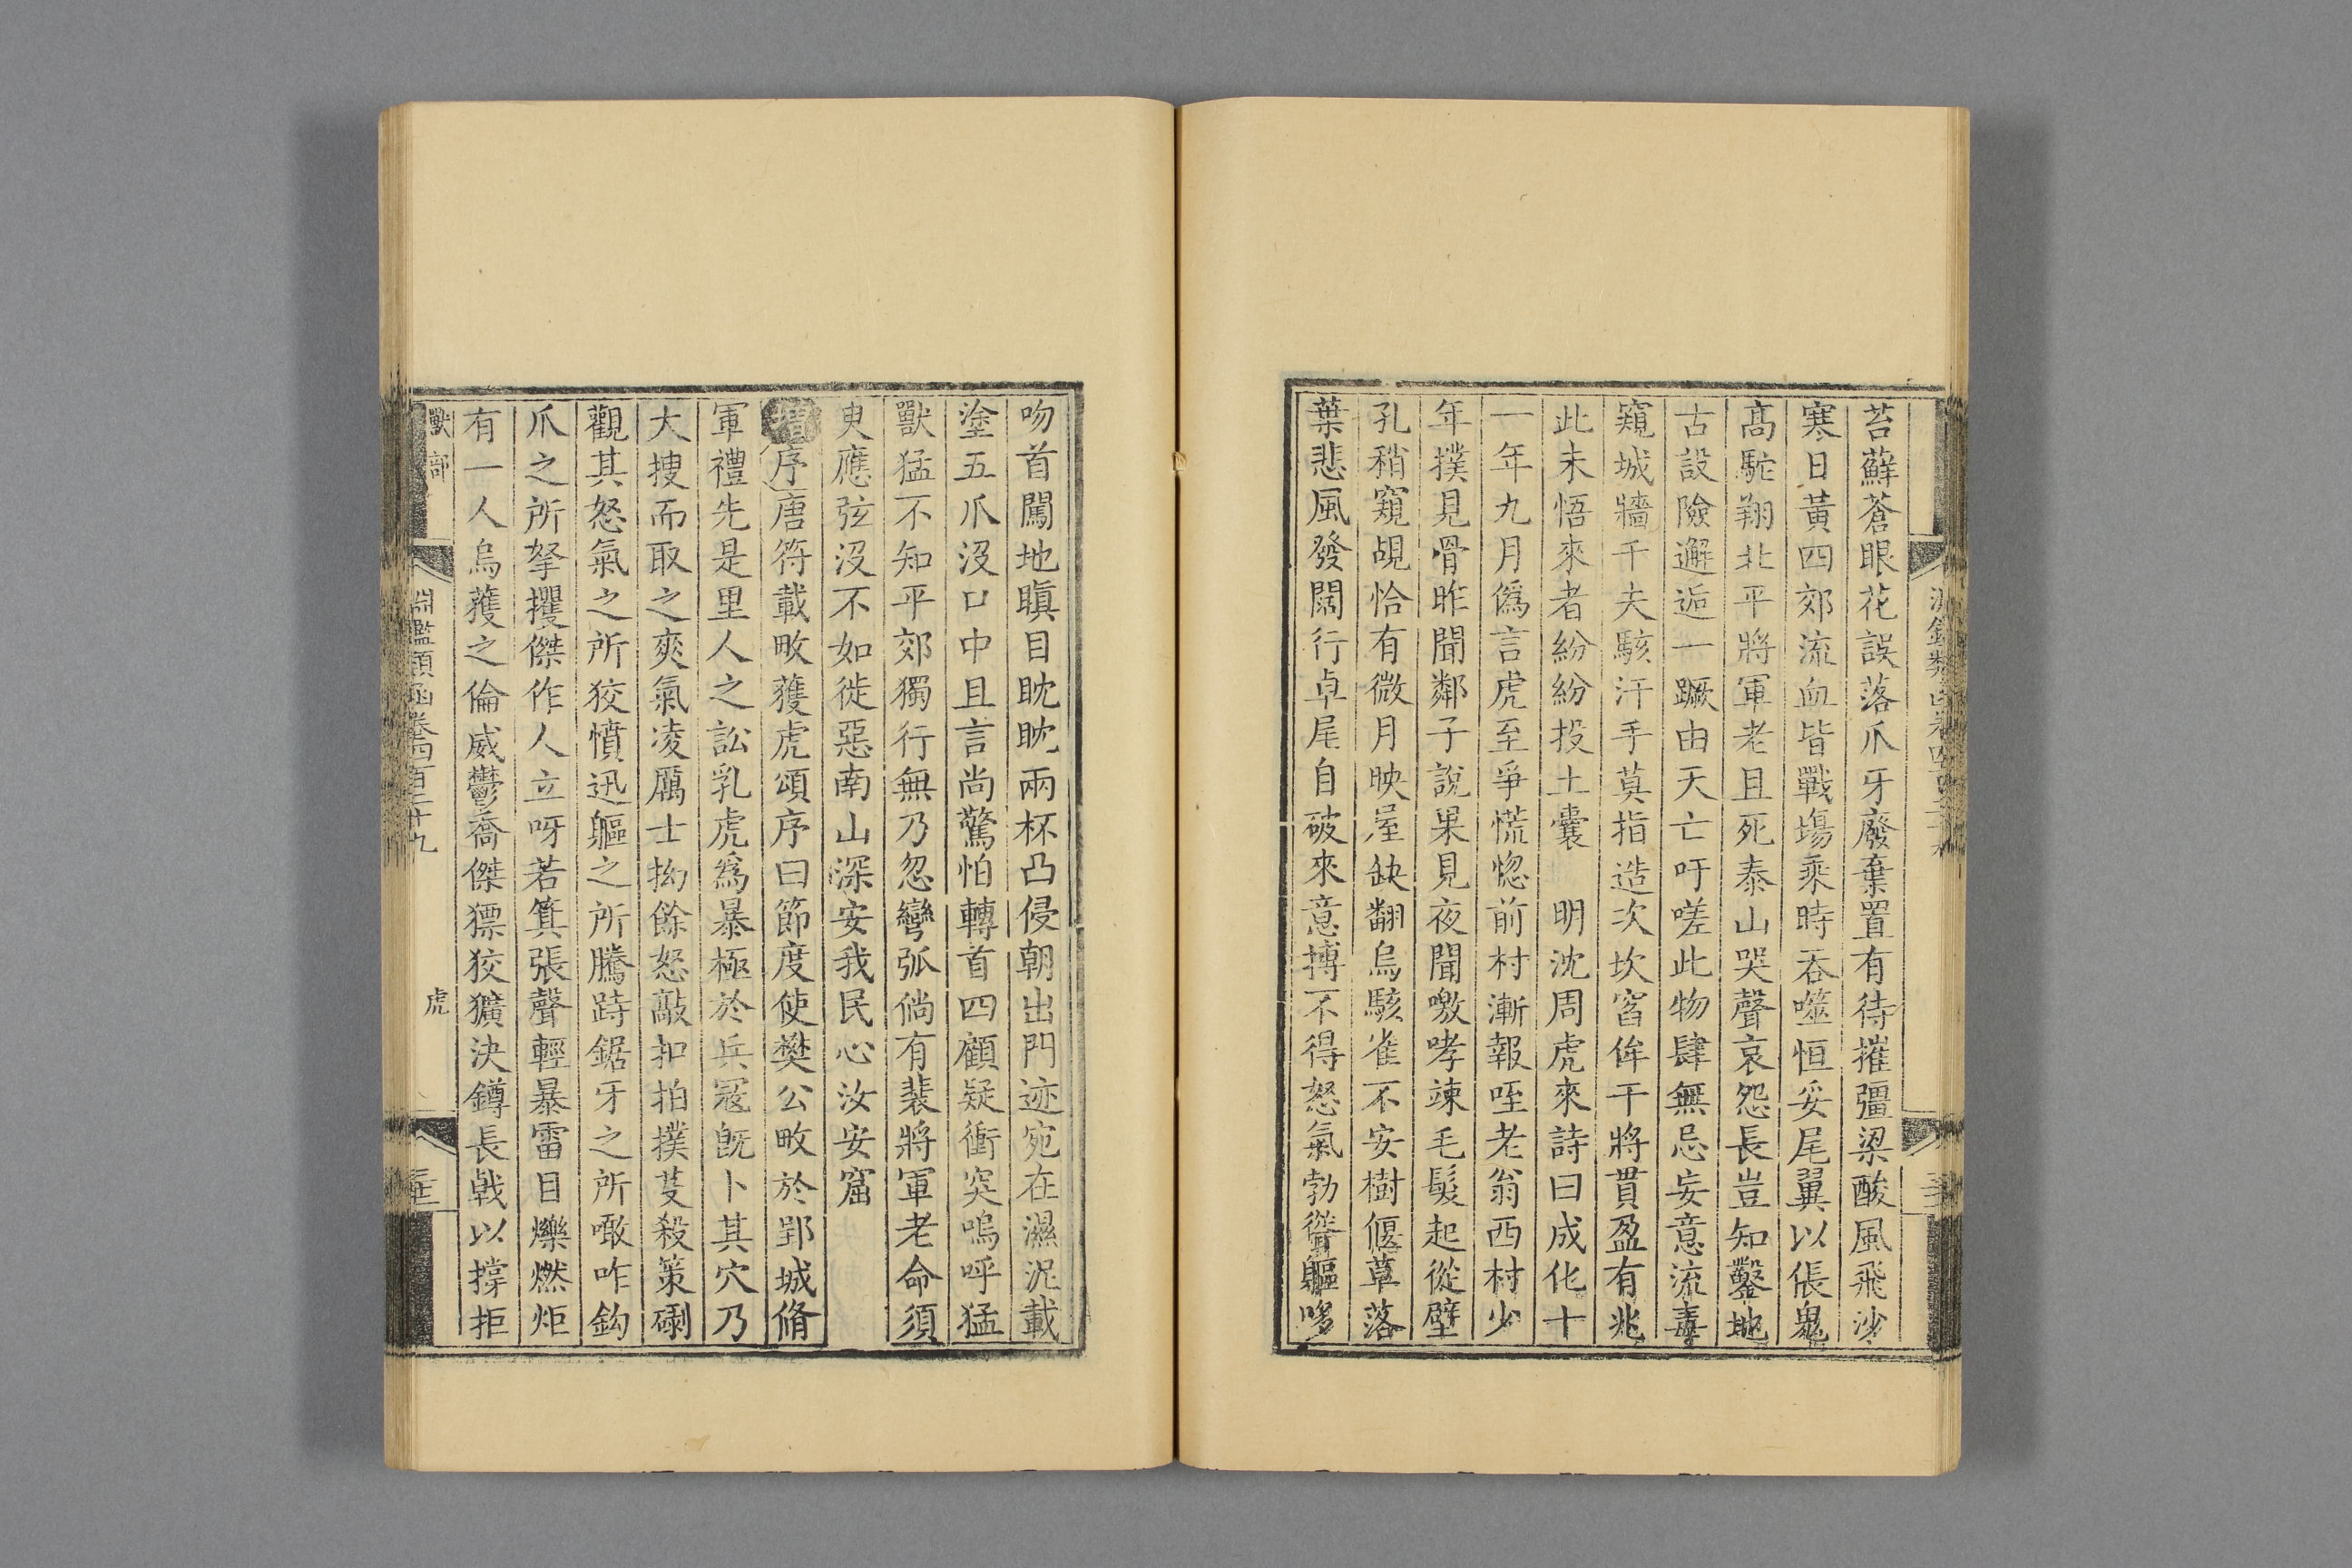 苔蘚蒼眼花誤落爪牙廢棄置有待摧彊梁酸風飛沙
寒日黃四郊流血皆戰塲乘時吞噬恒妥尾翼以倀鬼
髙駝翔北平將軍老且死泰山哭聲哀怨長豈知鑿地
古設險邂逅一蹶由天亡吁嗟此物肆無忌妄意流毒
窺城牆千夫駭汗手莫指造次坎窞侔干將貫盈有兆
此未悟來者紛紛投土囊　明沈周虎來詩曰成化十
一年九月僞言虎至爭慌惚前村漸報咥老翁西村少
年撲見骨昨聞鄰子說果見夜聞噭哮竦毛髮起從壁
孔稍窺覘恰有微月映屋缺翻烏駭雀不安樹偃草落
葉悲風發闊行卓尾自破來意摶不得怒氣勃聳軀哆
吻首闖地瞋目眈眈兩杯凸侵朝出門迹宛在濕泥載
塗五爪沒口中且言尚驚怕轉首四顧疑衝突嗚呼猛
獸猛不知平郊獨行無乃忽彎弧倘有裴將軍老命須
臾應弦沒不如徙惡南山深安我民心汝安窟
增序唐符載畋獲虎頌序曰節度使樊公畋於郢城脩
軍禮先是里人之訟乳虎爲暴極於兵冦旣卜其穴乃
大搜而取之爽氣凌厲士拗餘怒敲扣拍撲芟殺策磵
觀其怒氣之所狡憤迅軀之所騰跱鋸牙之所噉咋鈎
爪之所拏攫傑作人立呀若箕張聲輕暴雷目爍燃炬
有一人烏蒦之倫威鬱喬傑獷狡獷決鐏長戟以撐拒
獸部
淵鑑類函卷四百二十九
虎